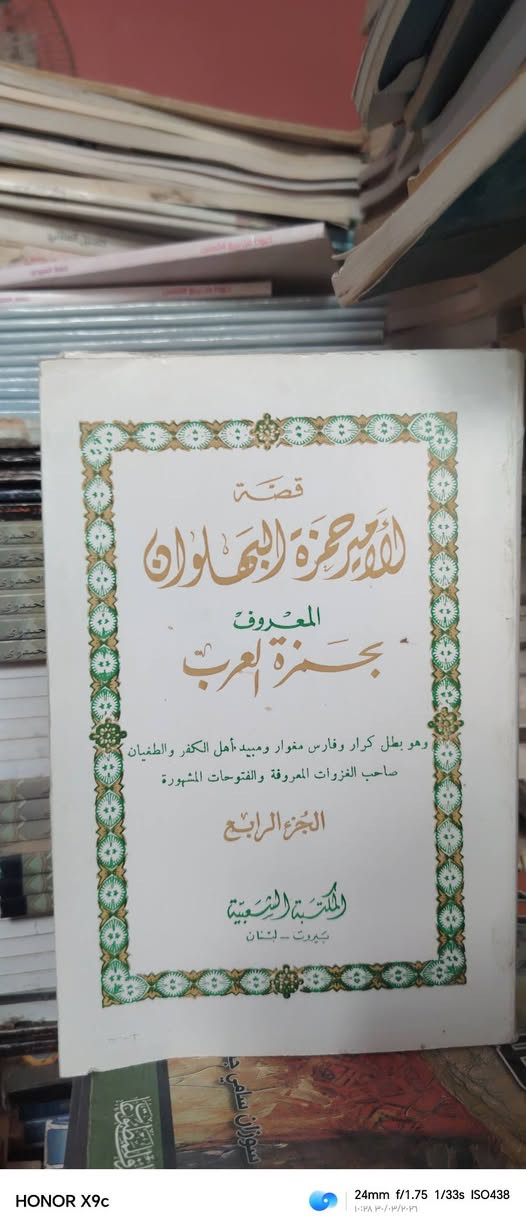 قصة
الأمير حمزة البهلوان
المعروف
بحمزة العرب
وهو بطل كرار وفارس مغوار ومبيد أهل الكفر والطغيان
صاحب الغزوات المعروفة والفتوحات المشهورة
الجزء الرابع
المكتبة الشعبية
بيروت - لبنان
سوزان سامي
HONOR X9c
24mm f/1.75 1/33s ISO438
١٠:٢٨ ٣٠/٠٣/٢٠٢٦